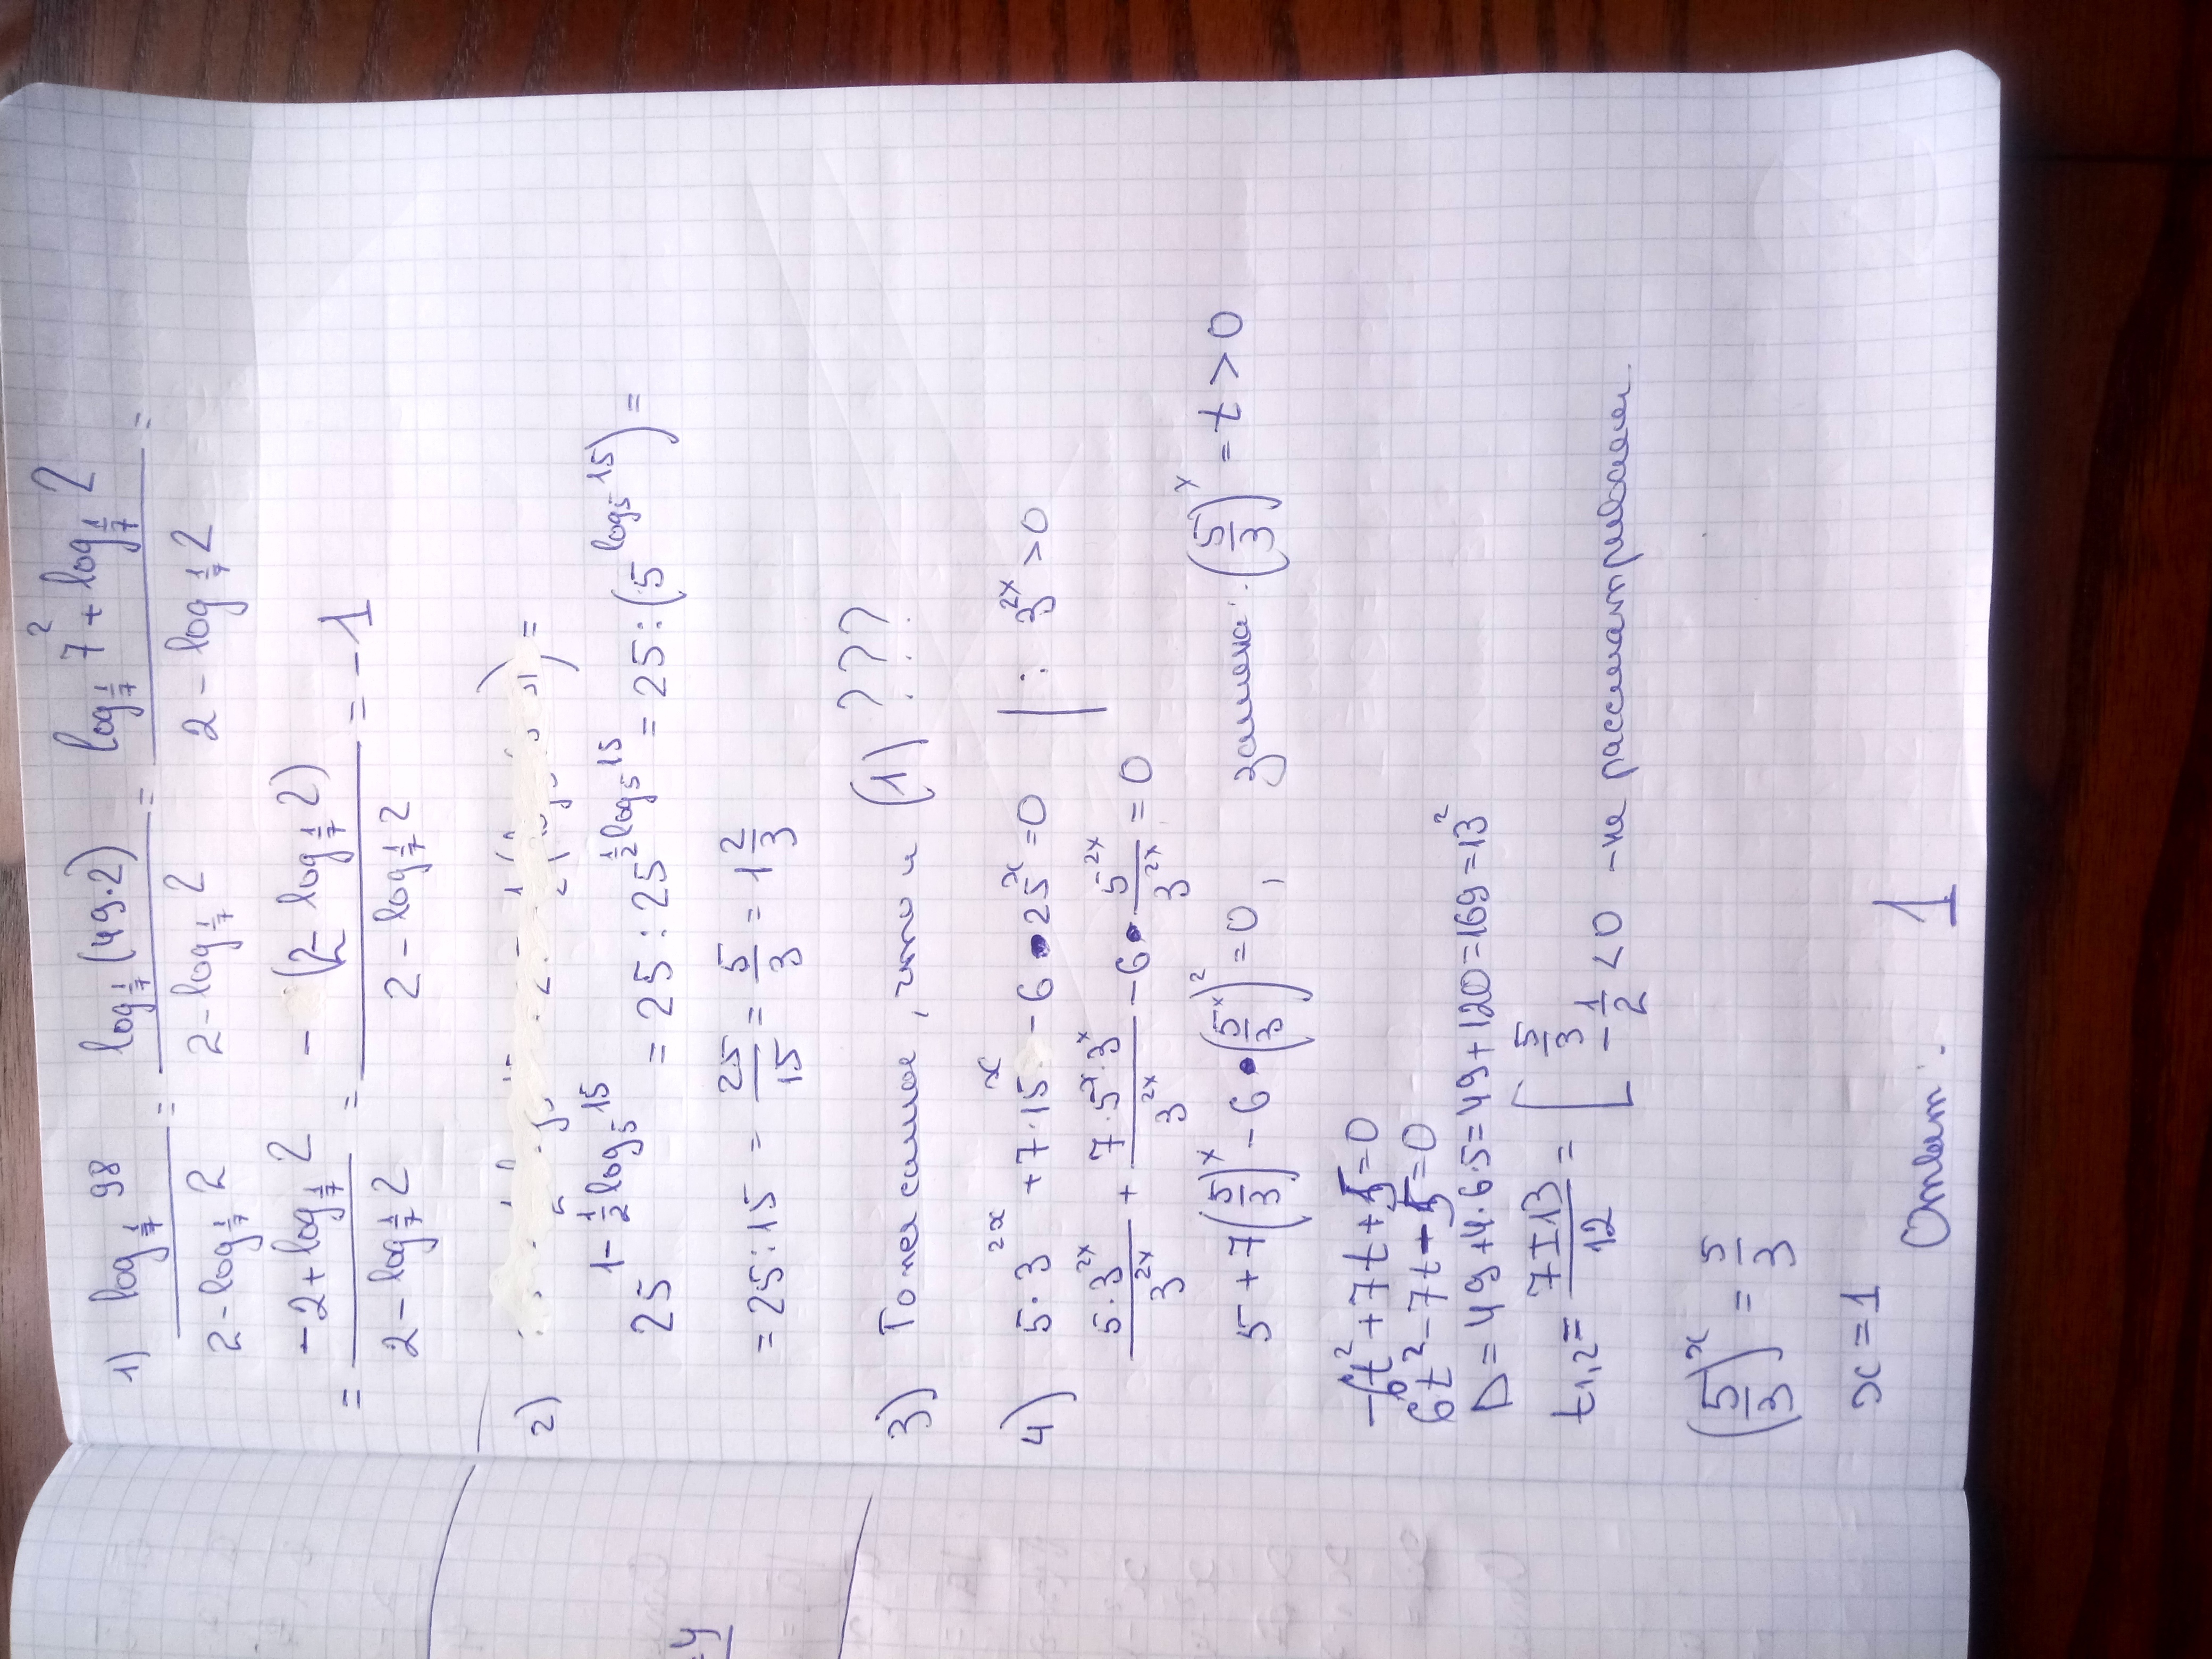 1) log_{1/7} 98 / (2 - log_{1/7} 2) = log_{1/7} (49·2) / (2 - log_{1/7} 2) = (log_{1/7} 7² + log_{1/7} 2) / (2 - log_{1/7} 2) =
= (-2 + log_{1/7} 2) / (2 - log_{1/7} 2) = -(2 - log_{1/7} 2) / (2 - log_{1/7} 2) = -1
2)
25^{1 - 1/2 log_5 15} = 25 : 25^{1/2 log_5 15} = 25 : (5^{log_5 15}) =
= 25 : 15 = 25/15 = 5/3 = 1 2/3
3) То же самое, что и (1) ???
4) 5·3^{2x} + 7·15^x - 6·25^x = 0 | : 3^{2x} > 0
5·3^{2x}/3^{2x} + 7·5^x·3^x/3^{2x} - 6·5^{2x}/3^{2x} = 0
5 + 7(5/3)^x - 6·((5/3)^x)² = 0, замена: (5/3)^x = t > 0
-6t² + 7t + 5 = 0
6t² - 7t - 5 = 0
D = 49 + 4·6·5 = 49 + 120 = 169 = 13²
t_{1,2} = (7 ± 13)/12 = [ 5/3
-1/2 < 0 - не рассматриваем.
(5/3)^x = 5/3
x = 1
Ответ: 1